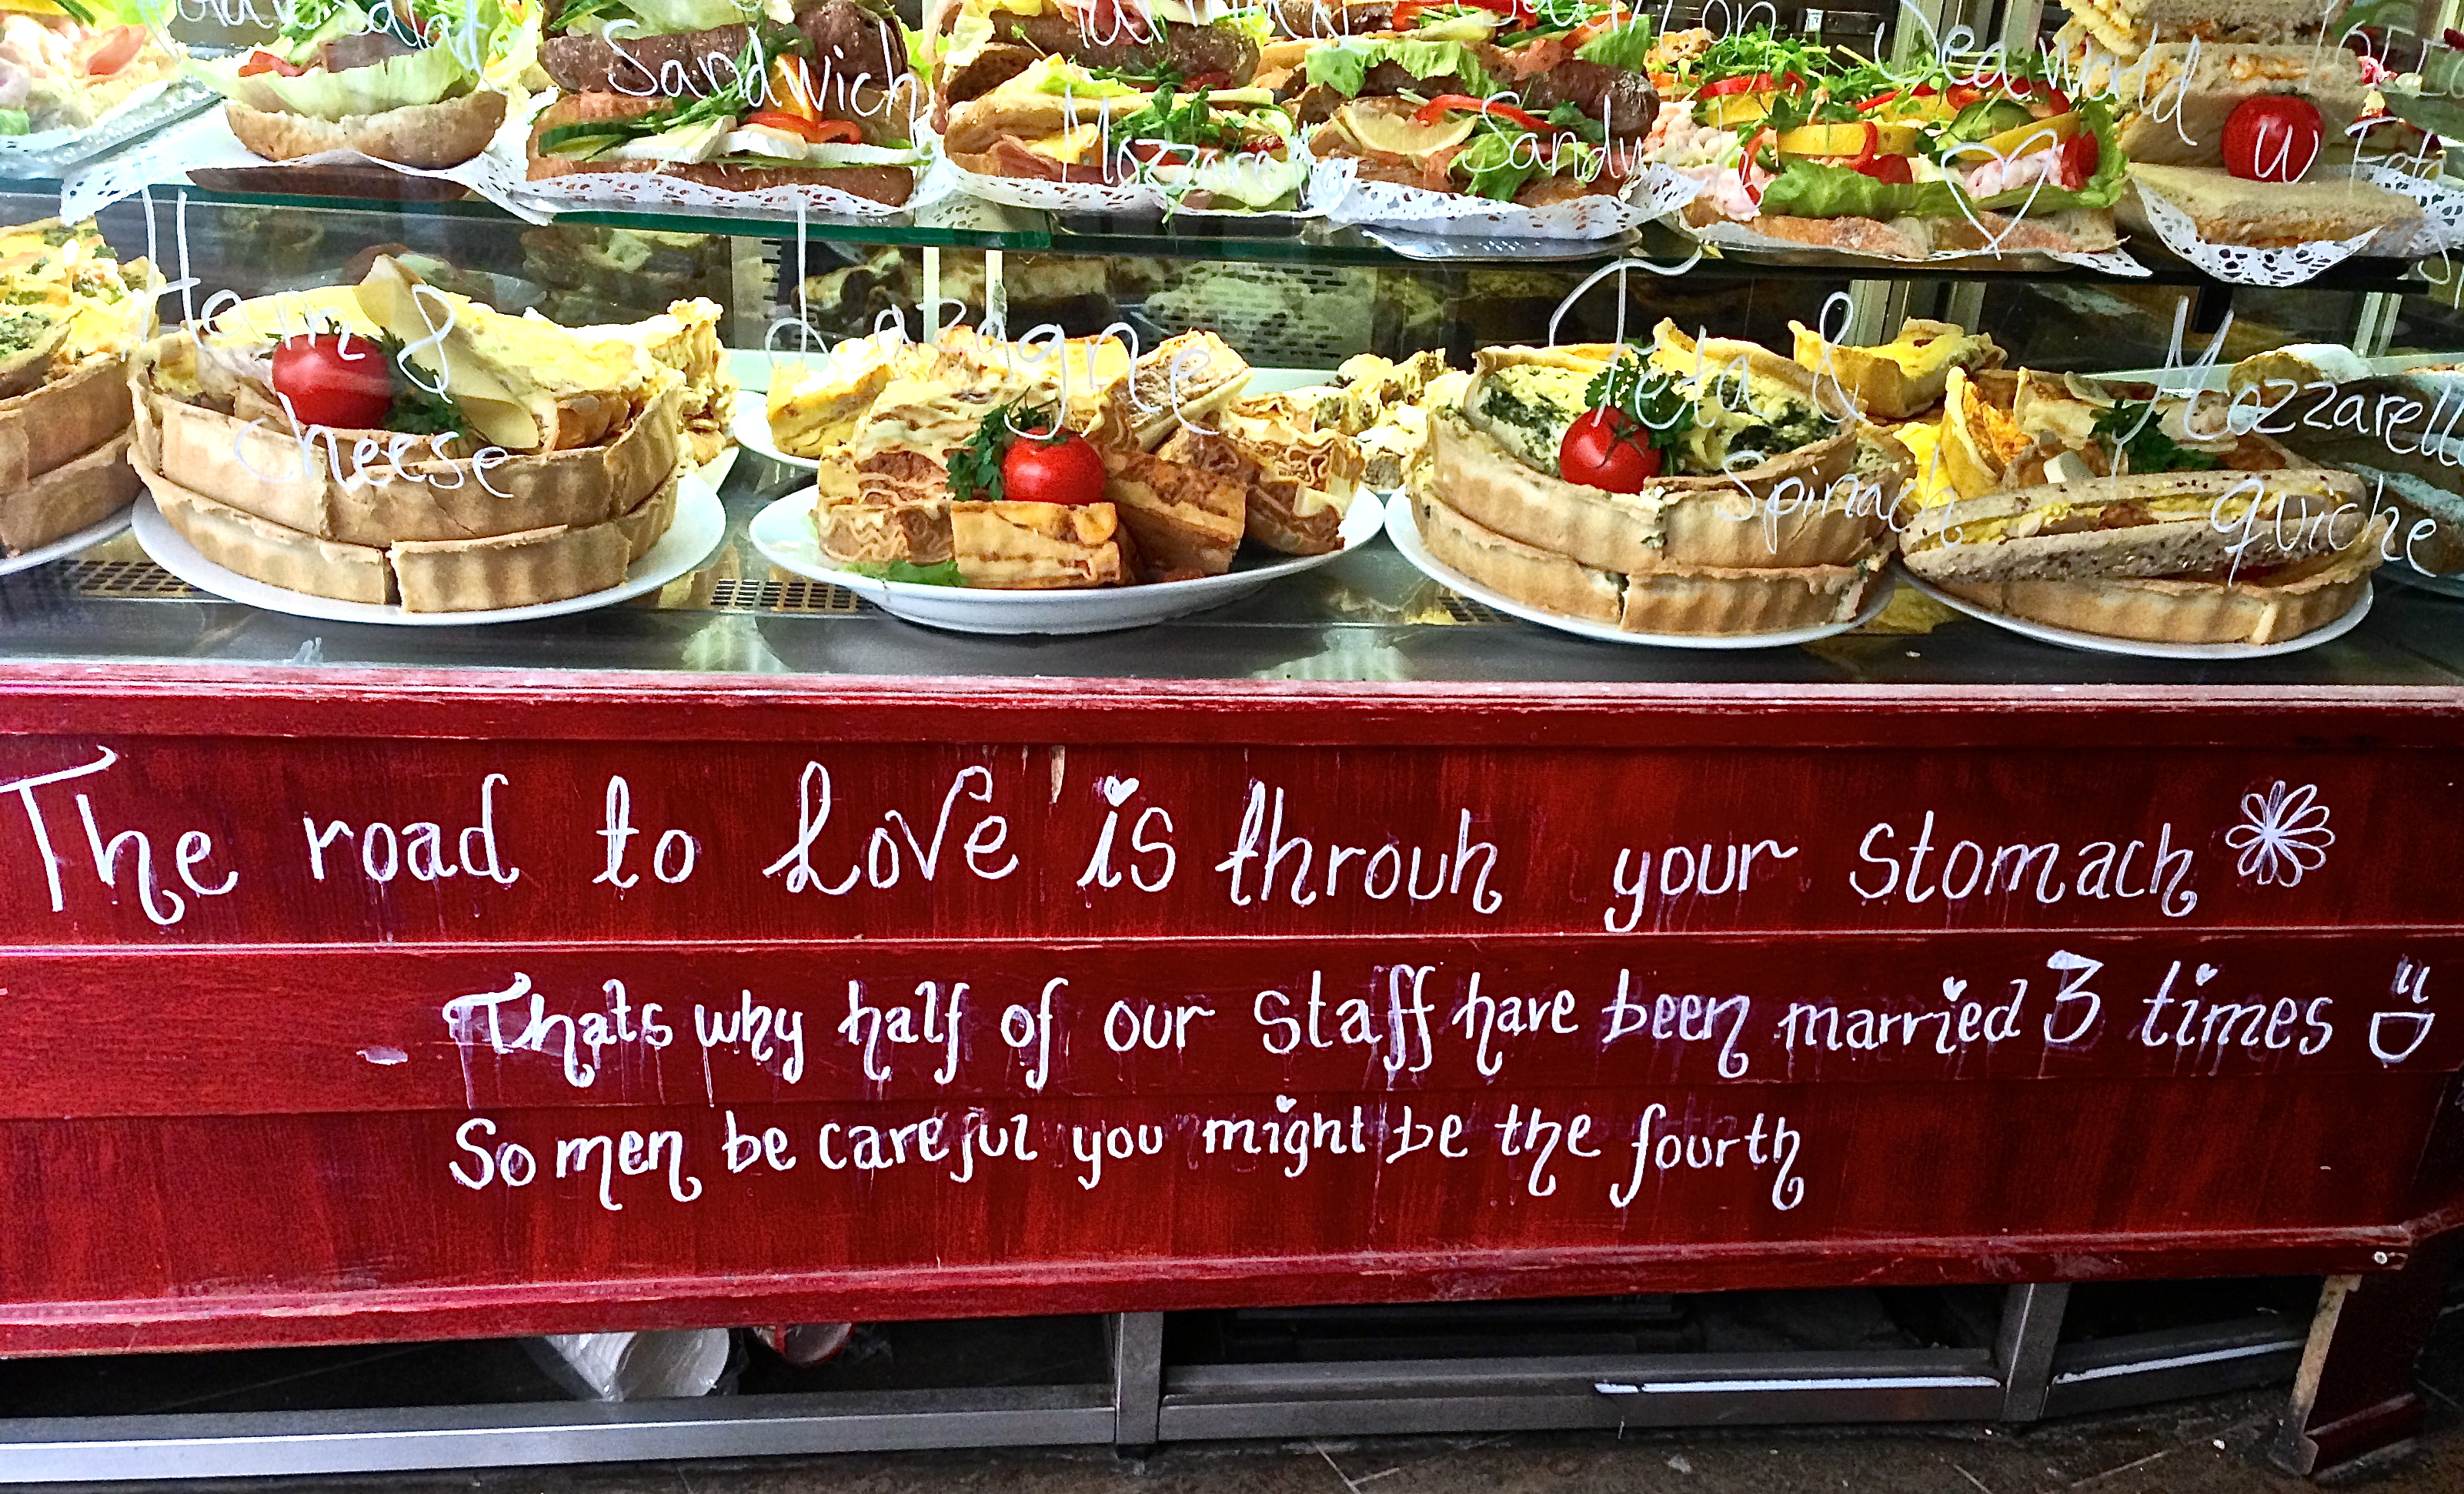 Sandwich
Sea World
Mozzarella
Sandwich
W Feta
Ham &
cheese
Lazagne
Feta &
Spinach
Mozzarella
quiche
The road to Love is throuh your stomach
Thats why half of our staff have been married 3 times
So men be careful you might be the fourth